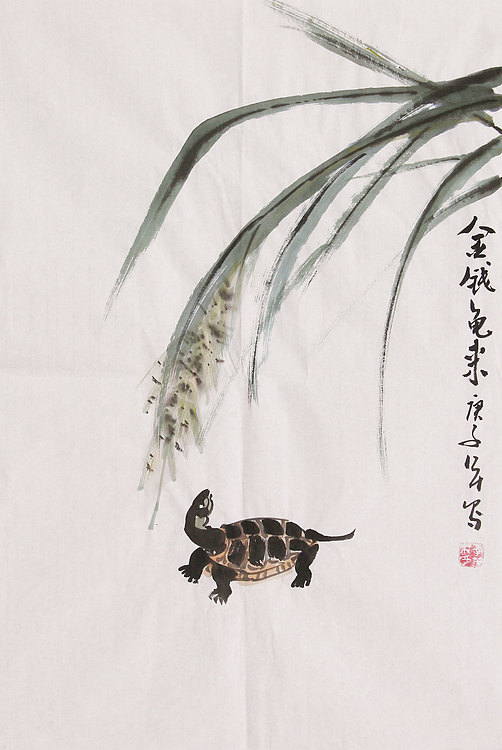 金钱龟来庚子年写